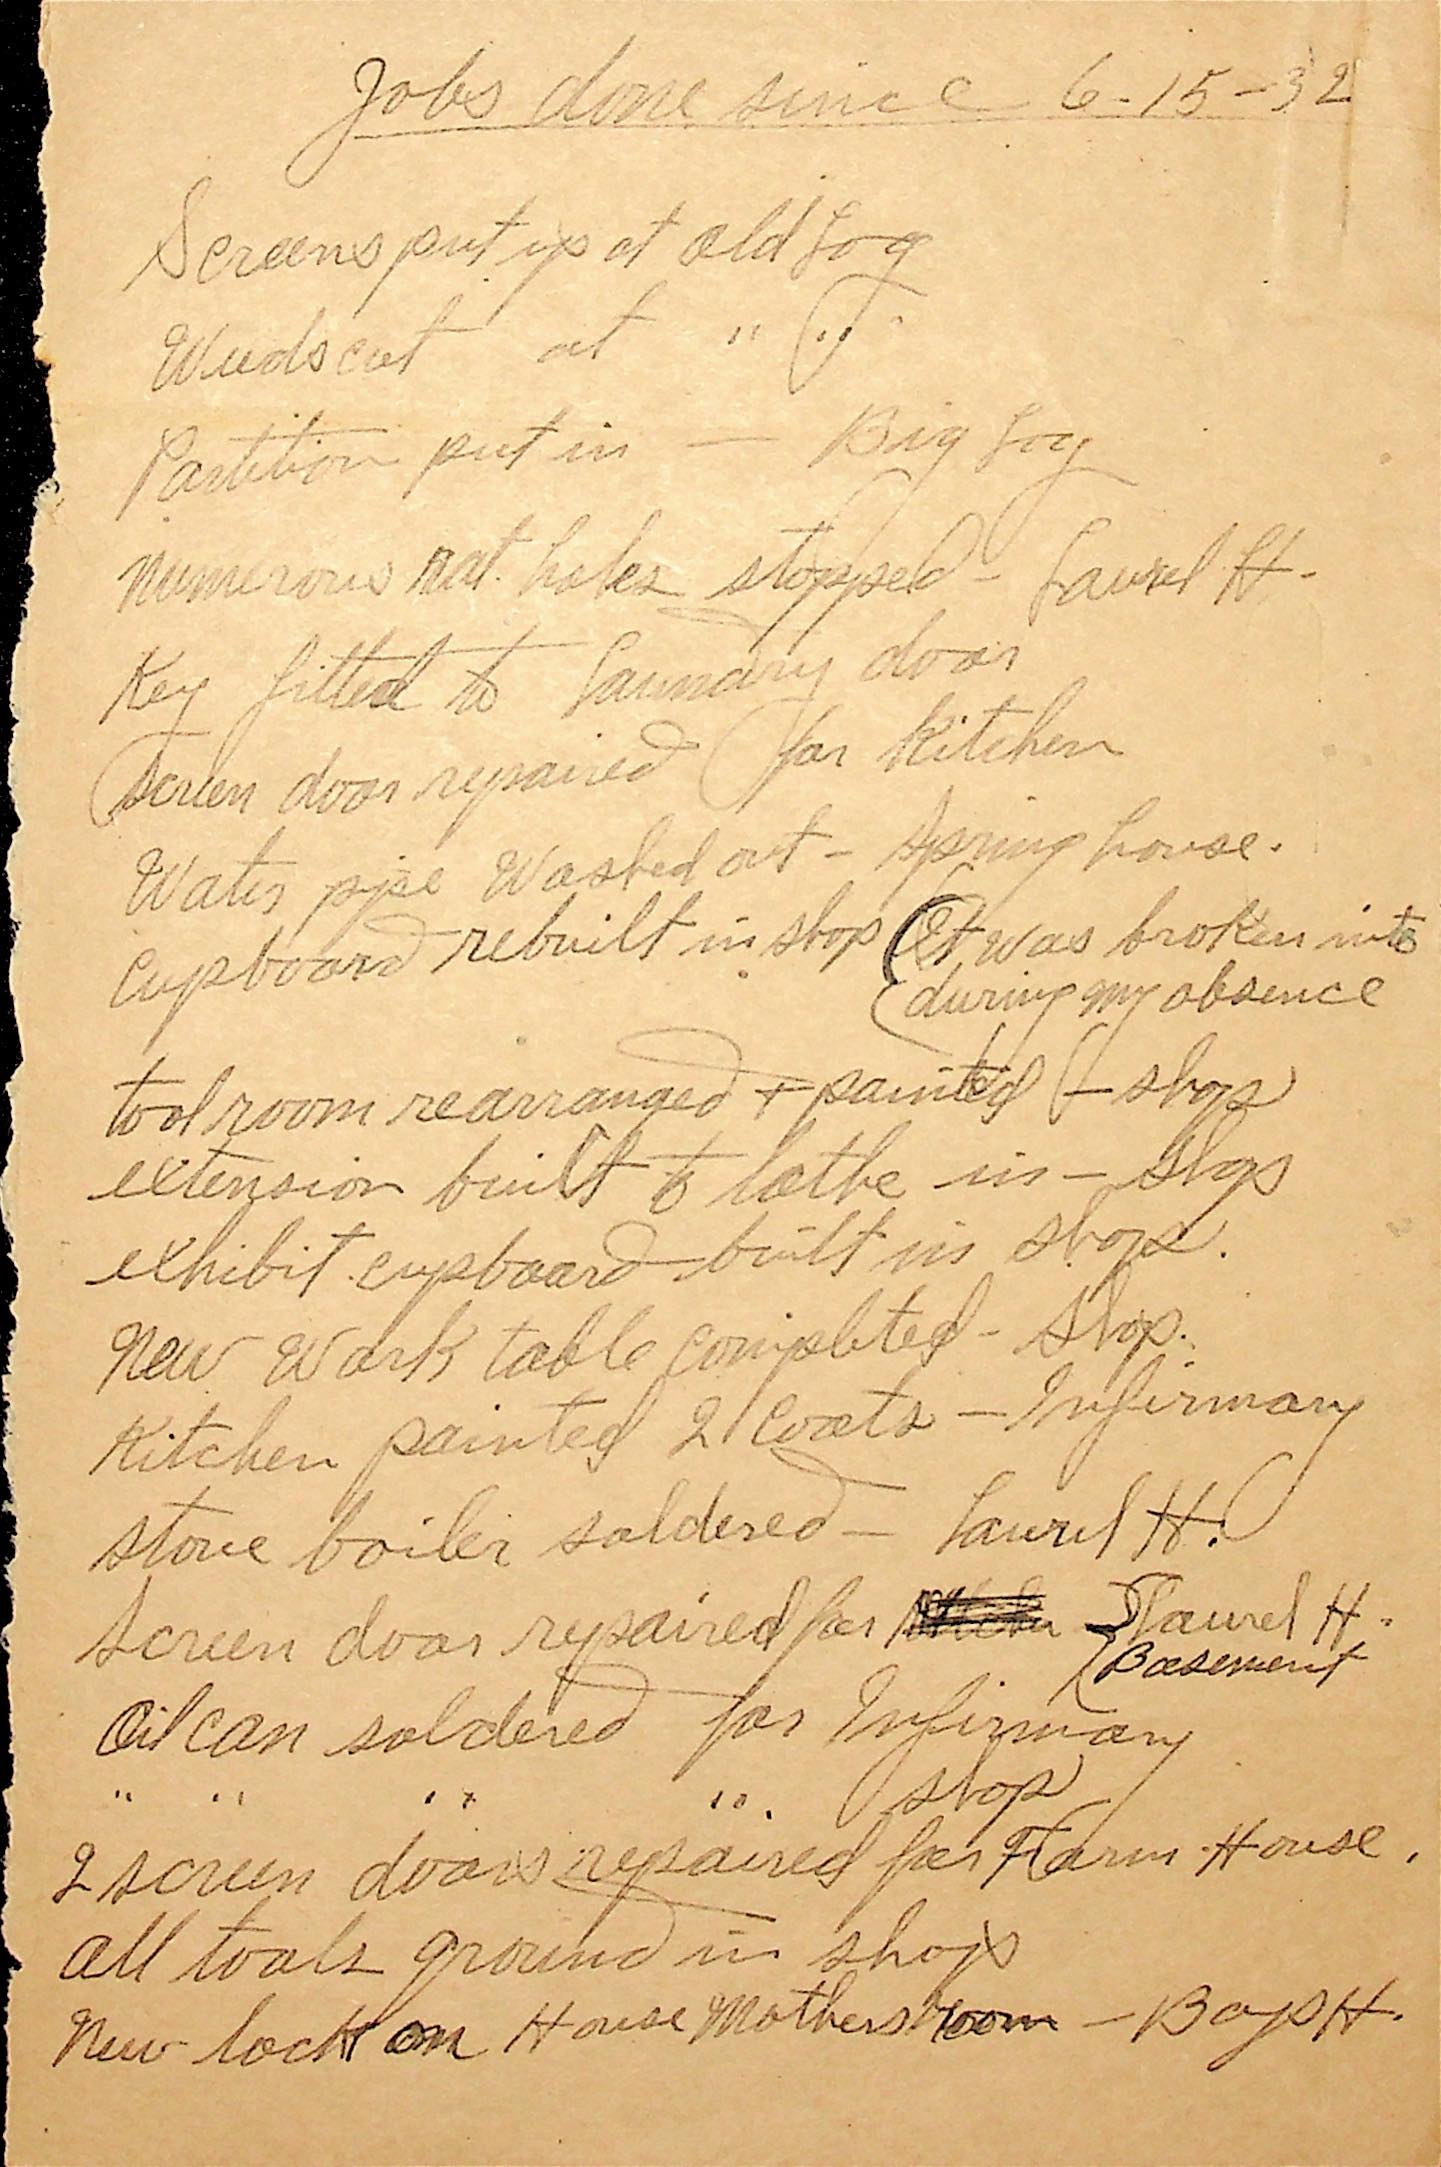 Jobs done since 6-15-32
Screens put up at Old Log
Weeds cut at " "
Partition put in — Big Log
Numerous rat holes stopped - Laurel H.
Key fitted to Laundry door
Screen door repaired for Kitchen
Water pipe Washed out - Spring house.
Cupboard rebuilt in shop (It was broken into
(during my absence
tool room rearranged + painted - shop
extension built to lathe in - shop
exhibit cupboard built in shop.
New Work table completed - Shop.
Kitchen painted 2 Coats - Infirmary
stove boiler soldered - Laurel H.
Screen door repaired for Laurel H.
Basement
Oil can soldered for Infirmary
" " " " shop
2 screen doors repaired for Farm House.
all tools ground in shop
New lock on House Mothers room - Boys H.